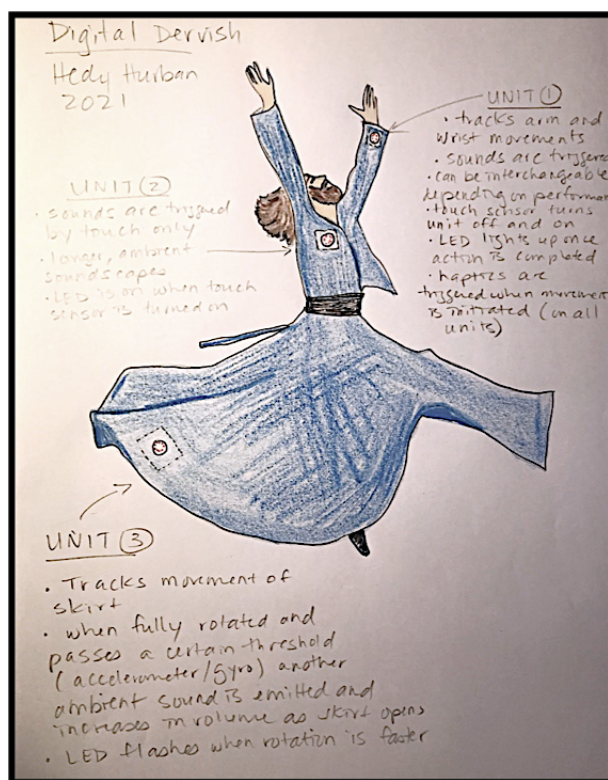 Digital Dervish
Hedy Hurban
2021
UNIT 1
• tracks arm and
wrist movements
• sounds are triggered
• can be interchangeable
depending on performance
• touch sensor turns
unit off and on
• LED lights up once
action is completed
• haptics are
triggered when movement
is initiated (on all
units)
UNIT 2
• sounds are triggered
by touch only
• longer, ambient
soundscapes
• LED is on when touch
sensor is turned on
UNIT 3
• Tracks movement of
skirt
• when fully rotated and
passes a certain threshold
(accelerometer/gyro) another
ambient sound is emitted and
increases in volume as skirt opens
• LED flashes when rotation is faster